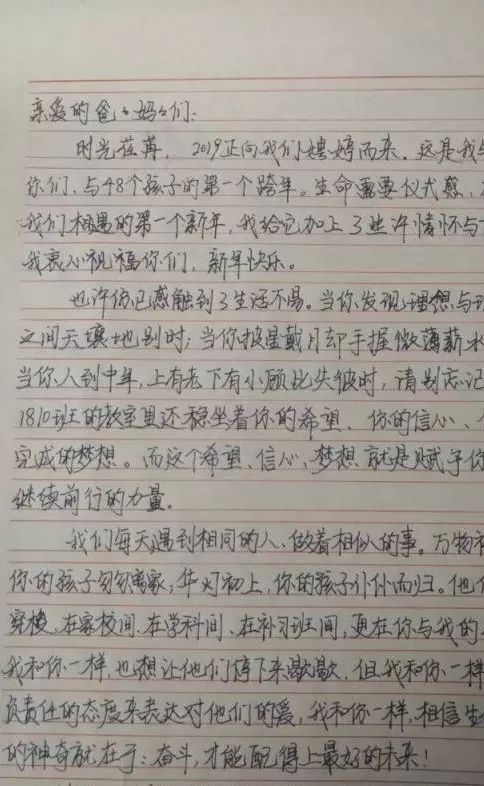 亲爱的爸爸妈妈们:
时光荏苒，2019正向我们娉婷而来。这是我与
你们、与48个孩子的第一个跨年。生命需要仪式感，
我们相遇的第一个新年，我给它加上了些许情怀与
我衷心祝福你们，新年快乐。
也许你已感触到了生活不易。当你发现理想与现
之间天壤地别时；当你披星戴月却手握微薄薪水
当你人到中年，上有老下有小顾此失彼时，请别忘记
1810班的教室里还稳坐着你的希望、你的信心、
完成的梦想。而这个希望、信心、梦想就是赋予你
继续前行的力量。
我们每天遇到相同的人、做着相似的事。万物
你的孩子匆匆离家，华灯初上，你的孩子仆仆而归。他们
穿梭，在家校间、在学科间、在补习班间，更在你与我的
我和你一样，也想让他们停下来歇歇，但我和你一样
负责任的态度来表达对他们的爱，我和你一样，相信生
的神奇就在于：奋斗，才能配得上最好的未来！